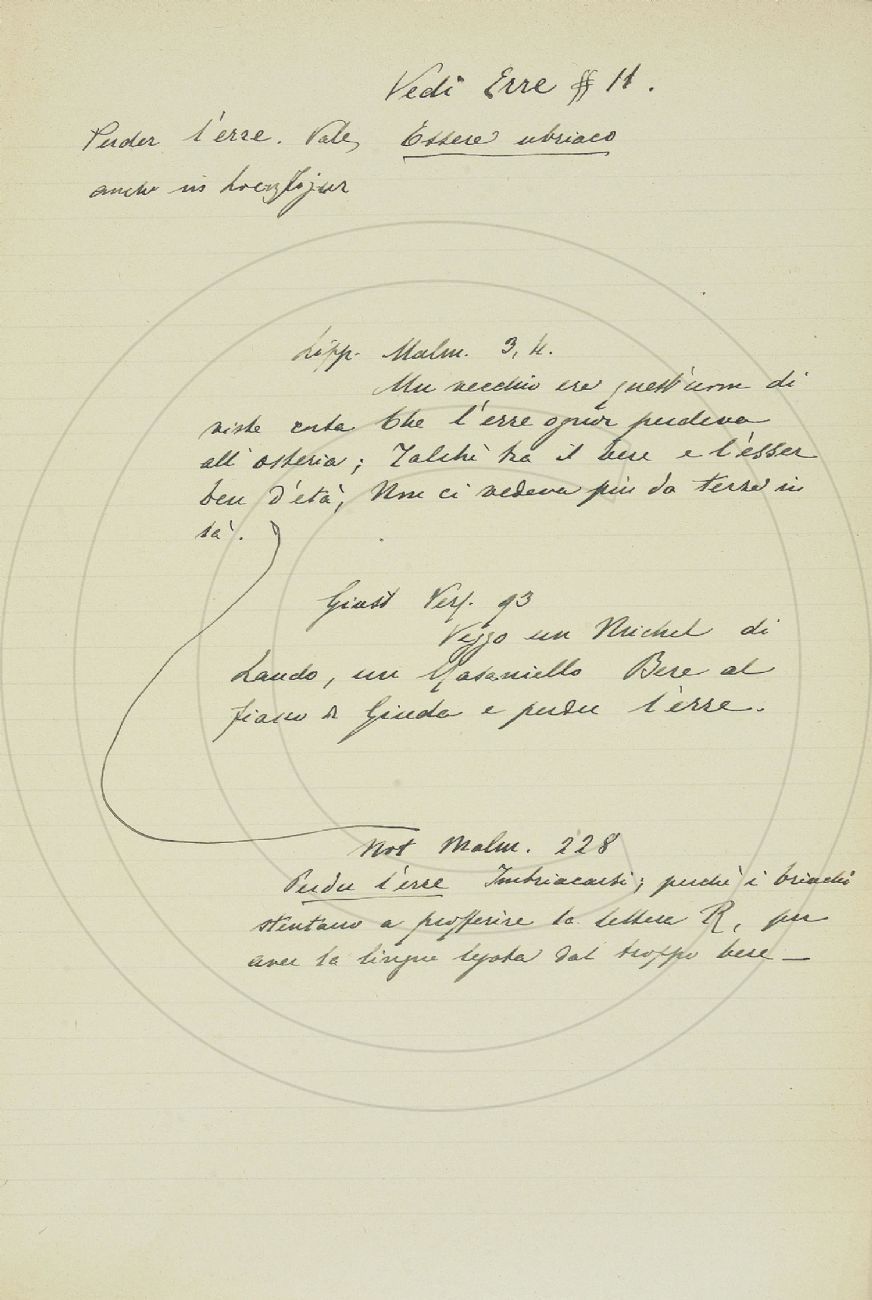 Vedi Erre § II.
Perder l'erre. Vale, Essere ubriaco
anche in
Lipp. Malm. 3, 4.
Ma vecchio era quest'uom di
vista corta Che l'erre ognor perdeva
all'osteria; Talchè tra il bere e l'esser
ben d'età, Non ci vedeva più da terra in
là.
Giust Vers. 93
Veggo un Michel di
Lando, un Masaniello Bere al
fiasco di Giuda e perder l'erre.
Not Malm. 228
Perder l'erre Imbriacarsi; perchè i briachi
stentano a profferire la lettera R, per
aver la lingua legata dal troppo bere —